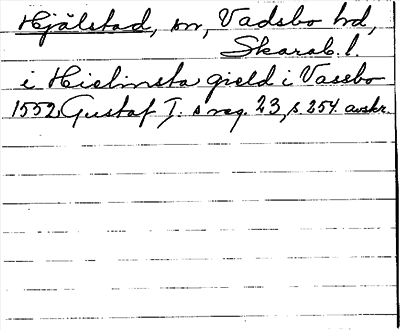 Hjälstad, sn, Vadsbo hd,
Skarab. l.
i Hielmsta gield i Vassbo
1552 Gustaf I. s reg. 23, s. 254. avskr.